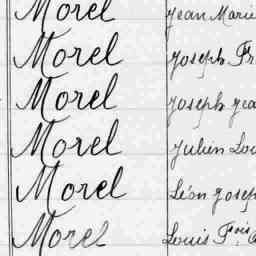 Morel Jean Marie
Morel Joseph Fr
Morel Joseph Jea
Morel Julien Lou
Morel Léon Josep
Morel Louis Fois